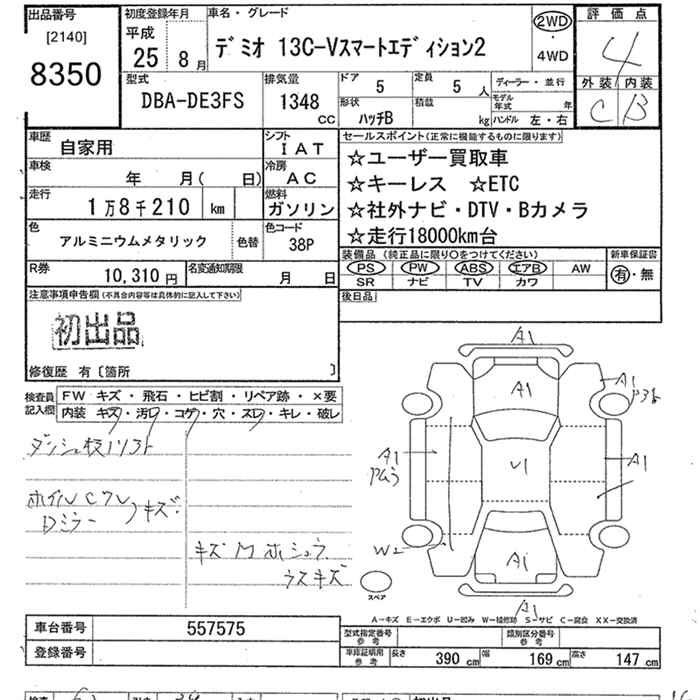 出品番号
[2140]
8350
初度登録年月
平成
25年 8月
車名・グレード
デミオ 13C-Vスマートエディション2
2WD
・
4WD
評価点
4
外装 内装
C B
型式
DBA-DE3FS
排気量
1348
CC
ドア
5
定員
5 人
形状
ハッチB
積載
kg
ディーラー・並行
モデル年式 年
ハンドル 左・右
車歴
自家用
シフト
IAT
車検
年 月( 日)
冷房
AC
走行
1万8千210 km
燃料
ガソリン
色
アルミニウムメタリック
色替
色コード
38P
R券
10,310 円
名変通知期限
月 日
セールスポイント(正常に機能するものに限ります)
☆ユーザー買取車
☆キーレス ☆ETC
☆社外ナビ・DTV・Bカメラ
☆走行18000km台
装備品 (純正品に限り○をつけてください)
PS PW ABS エアB AW
SR ナビ TV カワ
新車保証書
有・無
後日品
注意事項申告欄(不具合内容等は具体的に記入して下さい)
初出品
修復歴 有〔箇所 〕
検査員記入欄
FW キズ・飛石・ヒビ割・リペア跡・×要
内装 キズ・汚レ・コゲ・穴・スレ・キレ・破レ
キズ
ウスキズ
A1
A1
A1
A1
A1
U1
W2
A1
A1
スペア
A-キズ E-エクボ U-凹み W-補修跡 S-サビ C-腐食 XX-交換済
車台番号
557575
登録番号
型式指定番号参考
類別区分番号参考
車庫証明用参考
長さ 390 cm 幅 169 cm 高さ 147 cm